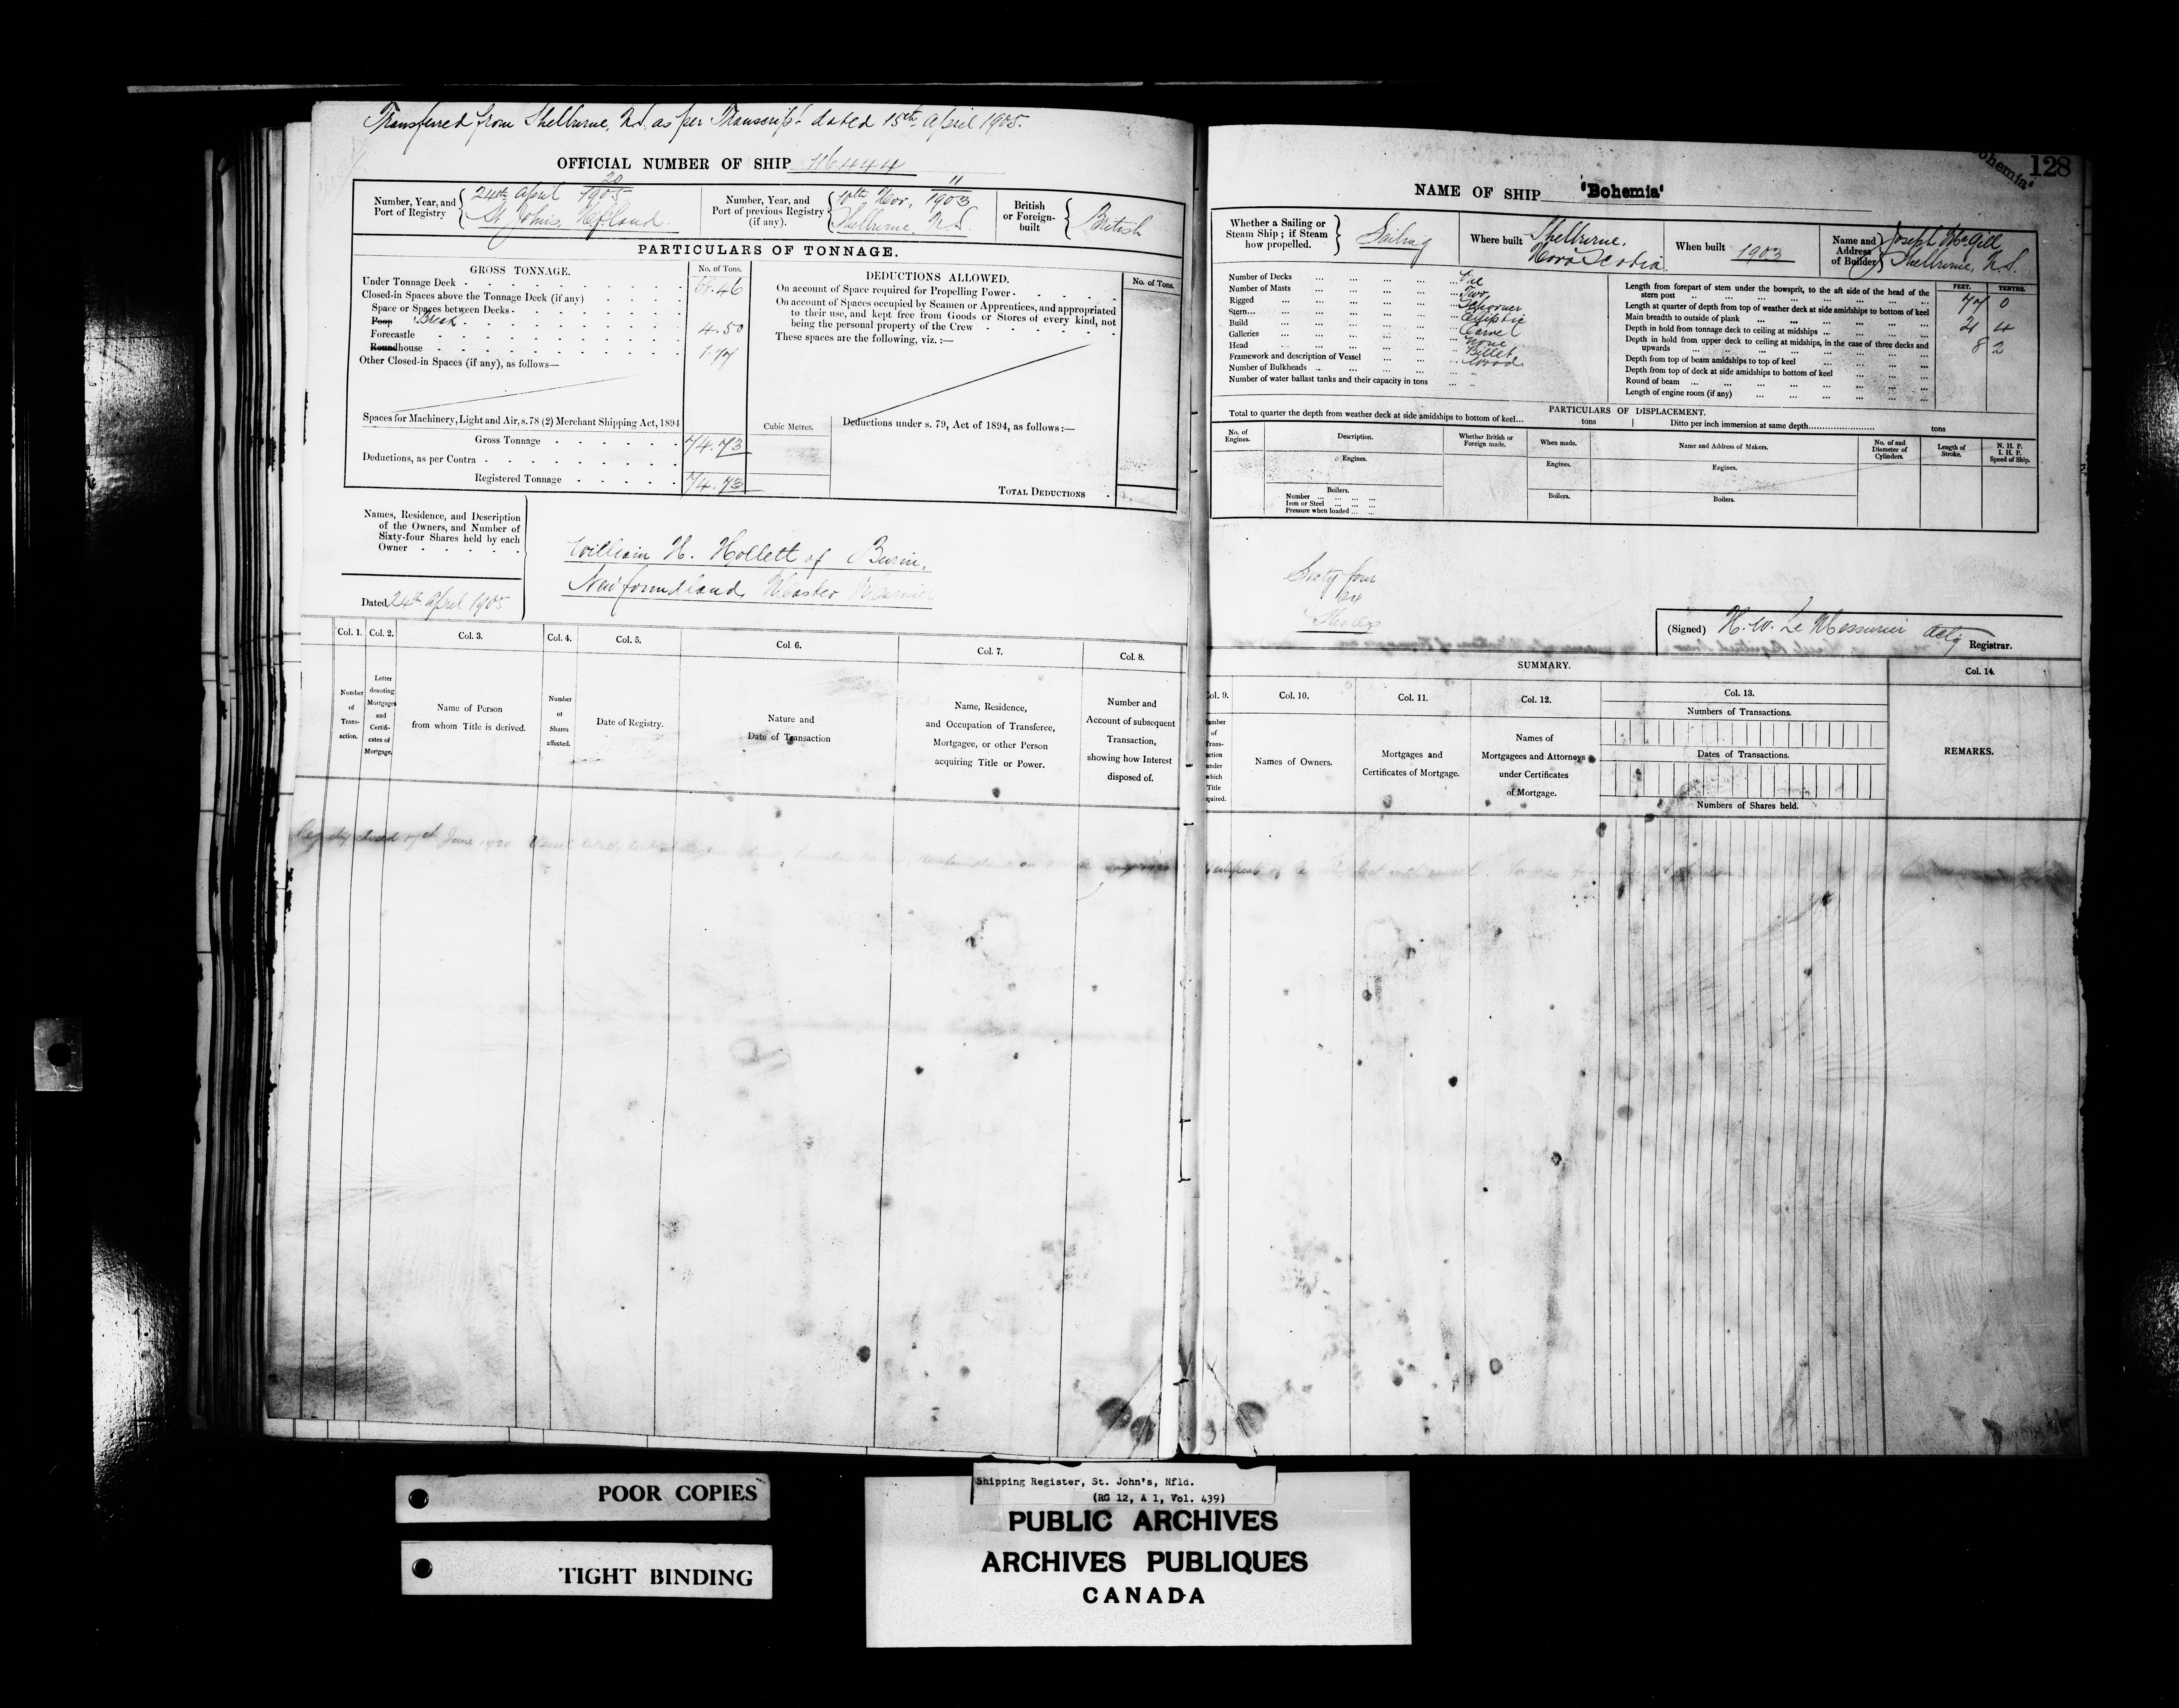 Transferred from Shelburne, N.S. as per Transcript dated 15th April 1905.
OFFICIAL NUMBER OF SHIP 116444
Number, Year, and Port of Registry
24th April 20/1905
St. John's, Nfland.
Number, Year, and Port of previous Registry (if any).
Nov., 11/1903
Shelburne, N.S.
British or Foreign-built
British
PARTICULARS OF TONNAGE.
GROSS TONNAGE.
No. of Tons.
Under Tonnage Deck 68.46
Closed-in Spaces above the Tonnage Deck (if any)
Space or Spaces between Decks
Poop Break 4.50
Forecastle
Roundhouse 1.77
Other Closed-in Spaces (if any), as follows—
Spaces for Machinery, Light and Air, s. 78 (2) Merchant Shipping Act, 1894
Gross Tonnage 74.73
Deductions, as per Contra
Registered Tonnage 74.73
Cubic Metres.
DEDUCTIONS ALLOWED.
No. of Tons.
On account of Space required for Propelling Power
On account of Spaces occupied by Seamen or Apprentices, and appropriated
to their use, and kept free from Goods or Stores of every kind, not
being the personal property of the Crew
These spaces are the following, viz. :—
Deductions under s. 79, Act of 1894, as follows :—
TOTAL DEDUCTIONS
Names, Residence, and Description
of the Owners, and Number of
Sixty-four Shares held by each
Owner
Dated 24th April 1905
William H. Hollett of Burin,
Newfoundland, Master Mariner
Col. 1. Col. 2. Col. 3. Col. 4. Col. 5. Col. 6. Col. 7. Col. 8.
Number of Transaction.
Letter denoting Mortgages and Certificates of Mortgage.
Name of Person from whom Title is derived.
Number of Shares affected.
Date of Registry.
Nature and Date of Transaction
Name, Residence, and Occupation of Transferee, Mortgagee, or other Person acquiring Title or Power.
Number and Account of subsequent Transaction, showing how Interest disposed of.
Registry closed 17th June 1920 Vessel totally lost
128
Bohemia'
NAME OF SHIP 'Bohemia'
Whether a Sailing or Steam Ship ; if Steam how propelled.
Sailing
Where built
Shelburne.
Nova Scotia.
When built 1903
Name and Address of Builder
Joseph McGill
Shelburne, N.S.
Number of Decks One
Number of Masts Two
Rigged Schooner
Stern Elliptic
Build Carvel
Galleries None
Head Billet
Framework and description of Vessel Wood
Number of Bulkheads
Number of water ballast tanks and their capacity in tons
FEET. TENTHS.
Length from forepart of stem under the bowsprit, to the aft side of the head of the
stern post 77 0
Length at quarter of depth from top of weather deck at side amidships to bottom of keel
Main breadth to outside of plank 21 4
Depth in hold from tonnage deck to ceiling at midships 8 2
Depth in hold from upper deck to ceiling at midships, in the case of three decks and
upwards
Depth from top of beam amidships to top of keel
Depth from top of deck at side amidships to bottom of keel
Round of beam
Length of engine room (if any)
PARTICULARS OF DISPLACEMENT.
Total to quarter the depth from weather deck at side amidships to bottom of keel... tons
Ditto per inch immersion at same depth tons
No. of Engines.
Description.
Whether British or Foreign made.
When made.
Name and Address of Makers.
No. of and Diameter of Cylinders.
Length of Stroke.
N. H. P.
I. H. P.
Speed of Ship.
Engines. Engines. Engines.
Boilers. Boilers. Boilers.
Number
Iron or Steel
Pressure when loaded
Sixty four
64
Shares
(Signed) H. W. Le Messurier Actg Registrar.
SUMMARY.
Col. 9. Col. 10. Col. 11. Col. 12. Col. 13. Col. 14.
Names of Owners.
Mortgages and Certificates of Mortgage.
Names of Mortgagees and Attorneys under Certificates of Mortgage.
Numbers of Transactions.
Dates of Transactions.
Numbers of Shares held.
REMARKS.
POOR COPIES
TIGHT BINDING
Shipping Register, St. John's, Nfld.
(RG 12, A 1, Vol. 439)
PUBLIC ARCHIVES
ARCHIVES PUBLIQUES
CANADA